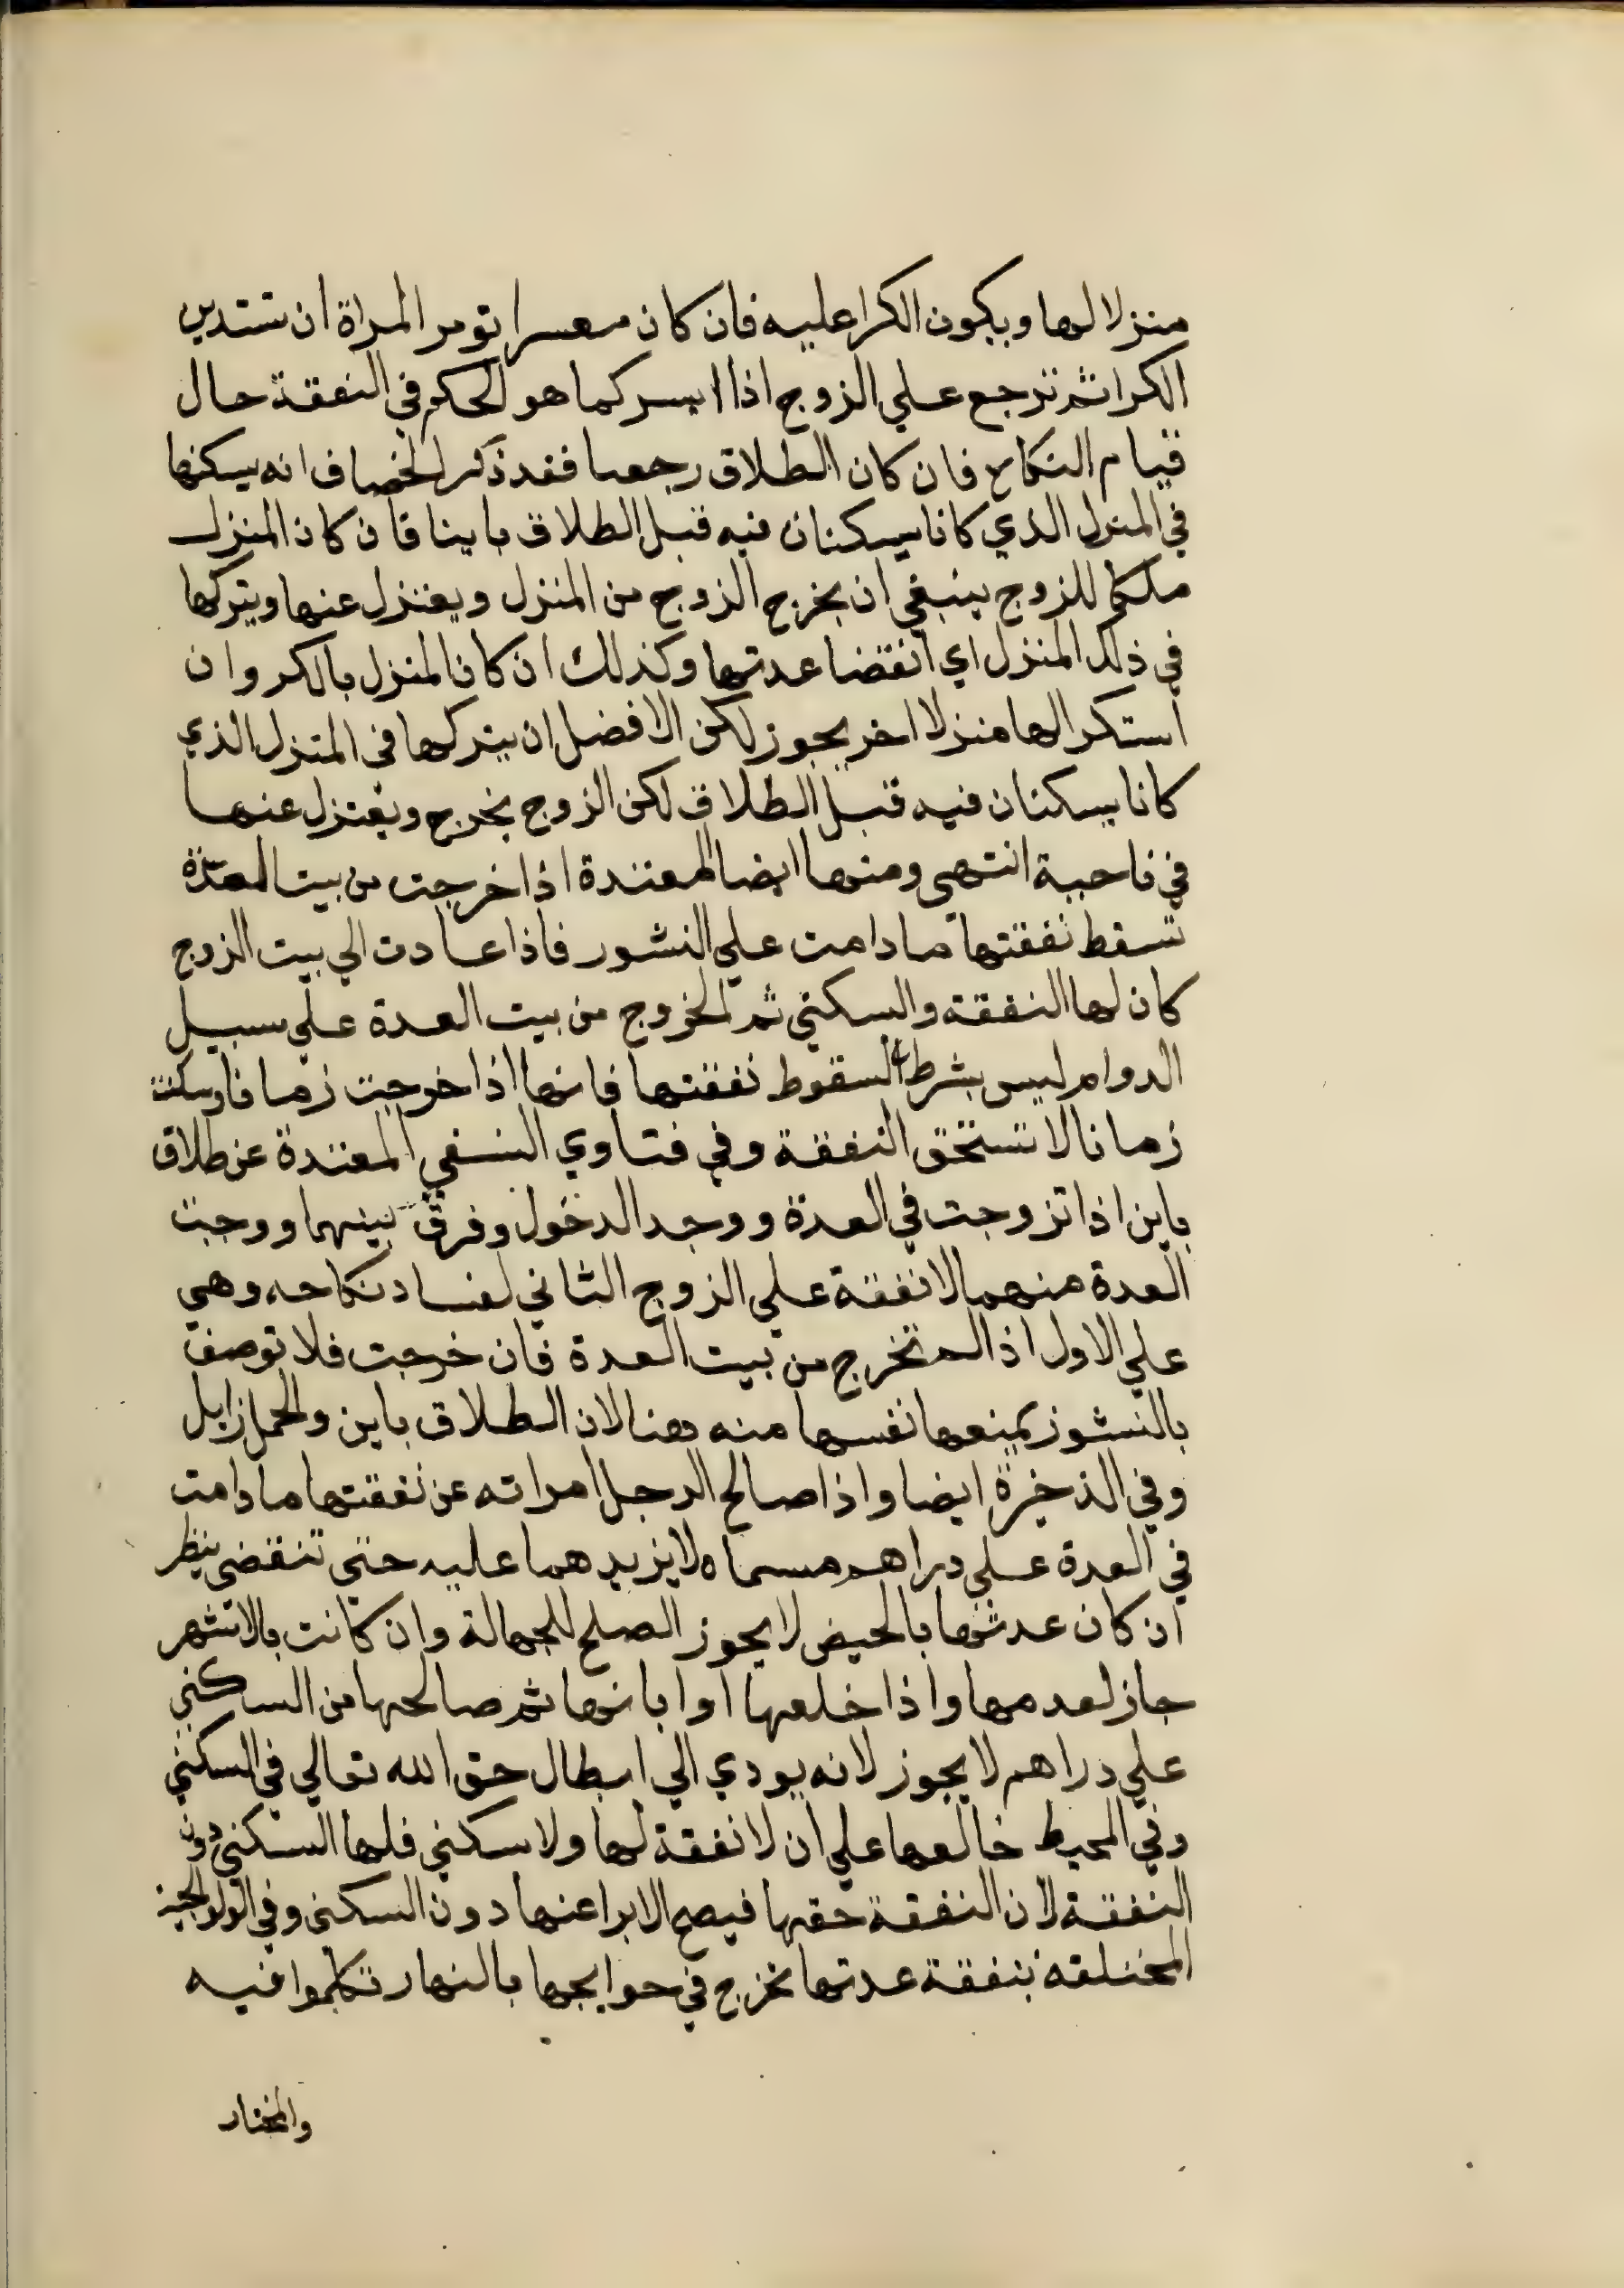 منزلا لها ويكون الكرا عليه فان كان معسرا تومر المراة ان تستدين
الكرا ثم ترجع علي الزوج اذا ايسر كما هو الحكم في النفقة حال
قيام النكاح فان كان الطلاق رجعيا فقد ذكر الخصاف انه يسكنها
في المنزل الذي كانا يسكنان فيه قبل الطلاق باينا فان كان المنزل
ملكا للزوج ينبغي ان يخرج الزوج من المنزل ويعتزل عنها ويتركها
في ذلك المنزل اي انقضا عدتها وكذلك ان كان المنزل بالكر وان
استكرا لها منزلا اخر يجوز لكن الافضل ان يتركها في المنزل الذي
كانا يسكنان فيه قبل الطلاق لكن الزوج يخرج ويعتزل عنها
في ناحية انتهي ومنها ايضا المعتدة اذا خرجت من بيت العدة
تسقط نفقتها ما دامت علي النشور فاذا عادت الي بيت الزوج
كان لها النفقة والسكني ثم الخروج من بيت العدة علي سبيل
الدوام ليس بشرط لسقوط نفقتها فانها اذا خرجت زمانا وسكنت
زمانا لا تستحق النفقة وفي فتاوي النسفي المعتدة عن طلاق
باين اذا تزوجت في العدة ووجد الدخول وفرق بينهما ووجبت
العدة منهما لا نفقة علي الزوج الثاني لفساد نكاحه وهي
علي الاول اذا لم تخرج من بيت العدة فان خرجت فلا توصف
بالنشوز بمنعها نفسها منه هنا لان الطلاق باين والحمل زايل
وفي الذخيرة ايضا واذا صالح الرجل امراته عن نفقتها ما دامت
في العدة علي دراهم مسماه لا يزيدهما عليه حتي تنقضي ينظر
ان كان عدتها بالحيض لا يجوز الصلح للجهالة وان كانت بالاشهر
جاز لعدمها واذا خلعها او ابانها ثم صالحها من الساكني
علي دراهم لا يجوز لانه يودي الي ابطال حق الله تعالي في السكني
وفي المحيط خالعها علي ان لا نفقة لها ولا سكني فلها السكني دون
النفقة لان النفقة حقها فيصح الابرا عنها دون السكني وفي الولوالجية
المختلعه بنفقة عدتها تخرج في حوايجها بالنهار تكلموا فيه
والمختار